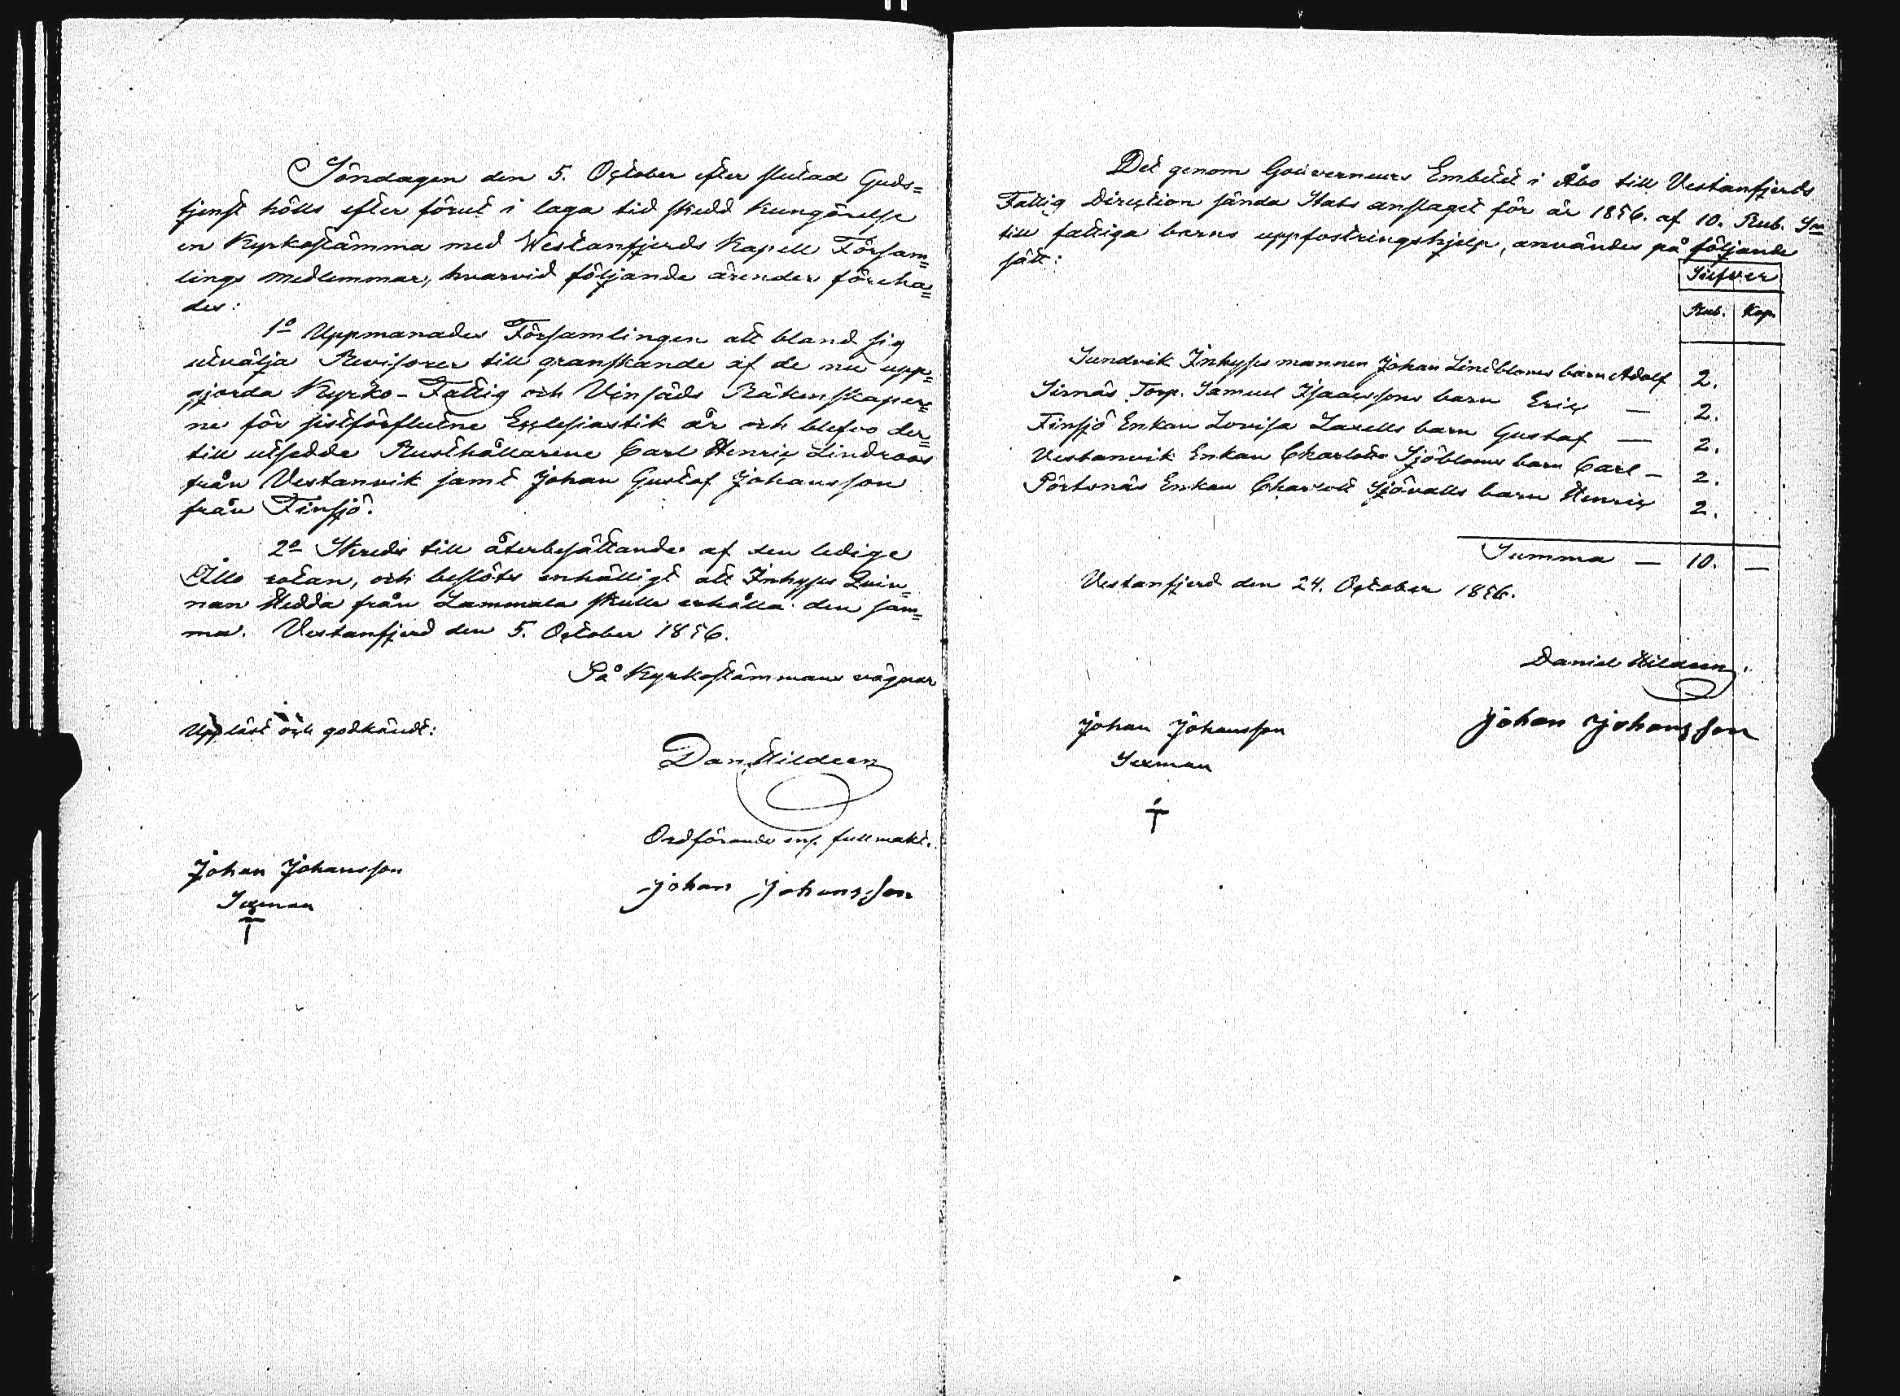 Söndagen den 5. October efter slutad Guds=
tjenst hölls efter förut i laga tid skedd kungörelse
en Kyrkostämma med Westanfjerds Kapell Försam=
lings medlemmar, hvarvid följande ärender föreha=
des:
1o Uppmanades Församlingen att bland sig
utvälja Revisorer till granskande af de nu upp=
gjorda Kyrko- Fattig och Vinsäds Räkenskaper=
ne för sistförflutne Ecclesiastik år och blefvo der=
till utsedde Rusthållarene Carl Henric Lindroos
från Vestanvik samt Johan Gustaf Johansson
från Finsjö.
2o Skreds till återbesättande af den ledige
rotan, och beslöts enhälligt att Inhyses Qvin=
nan Hedda från Lammala skulle erhålla den sam=
ma. Vestanfjerd den 5. October 1856.
På Kyrkostämmans vägnar
Uppläst och godkändt:
Dan. Hildeen
Ordförande enl. fullmakt.
Johan Johansson
Johan Johansson
Sexman
Det genom Gouverneurs Embetet i Åbo till Vestanfjerds
Fattig Direction sända Stats anslaget för år 1856. af 10. Rub. Srr
till fattiga barns uppfostringshjelp, användes på följande
sätt:
Silfver
Rub. Kop.
Sundvik Inhyses mannen Johan Lindbloms barn Adolf 2.
Sirnäs Torp. Samuel Isaacssons barn Eric — 2.
Finsjö Enkan Lovisa Laxells barn Gustaf — 2.
Vestanvik Enkan Charlotta Sjöbloms barn Carl — 2.
Pörtsnäs Enkan Charlott Sjövalls barn Henric 2.
Summa — 10. —
Vestanfjerd den 24. October 1856.
Daniel Hildeen.
Johan Johansson
Johan Johansson
Sexman